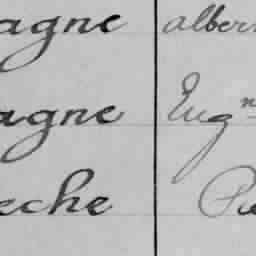 agne alber
agne Eug^n
eche Pie